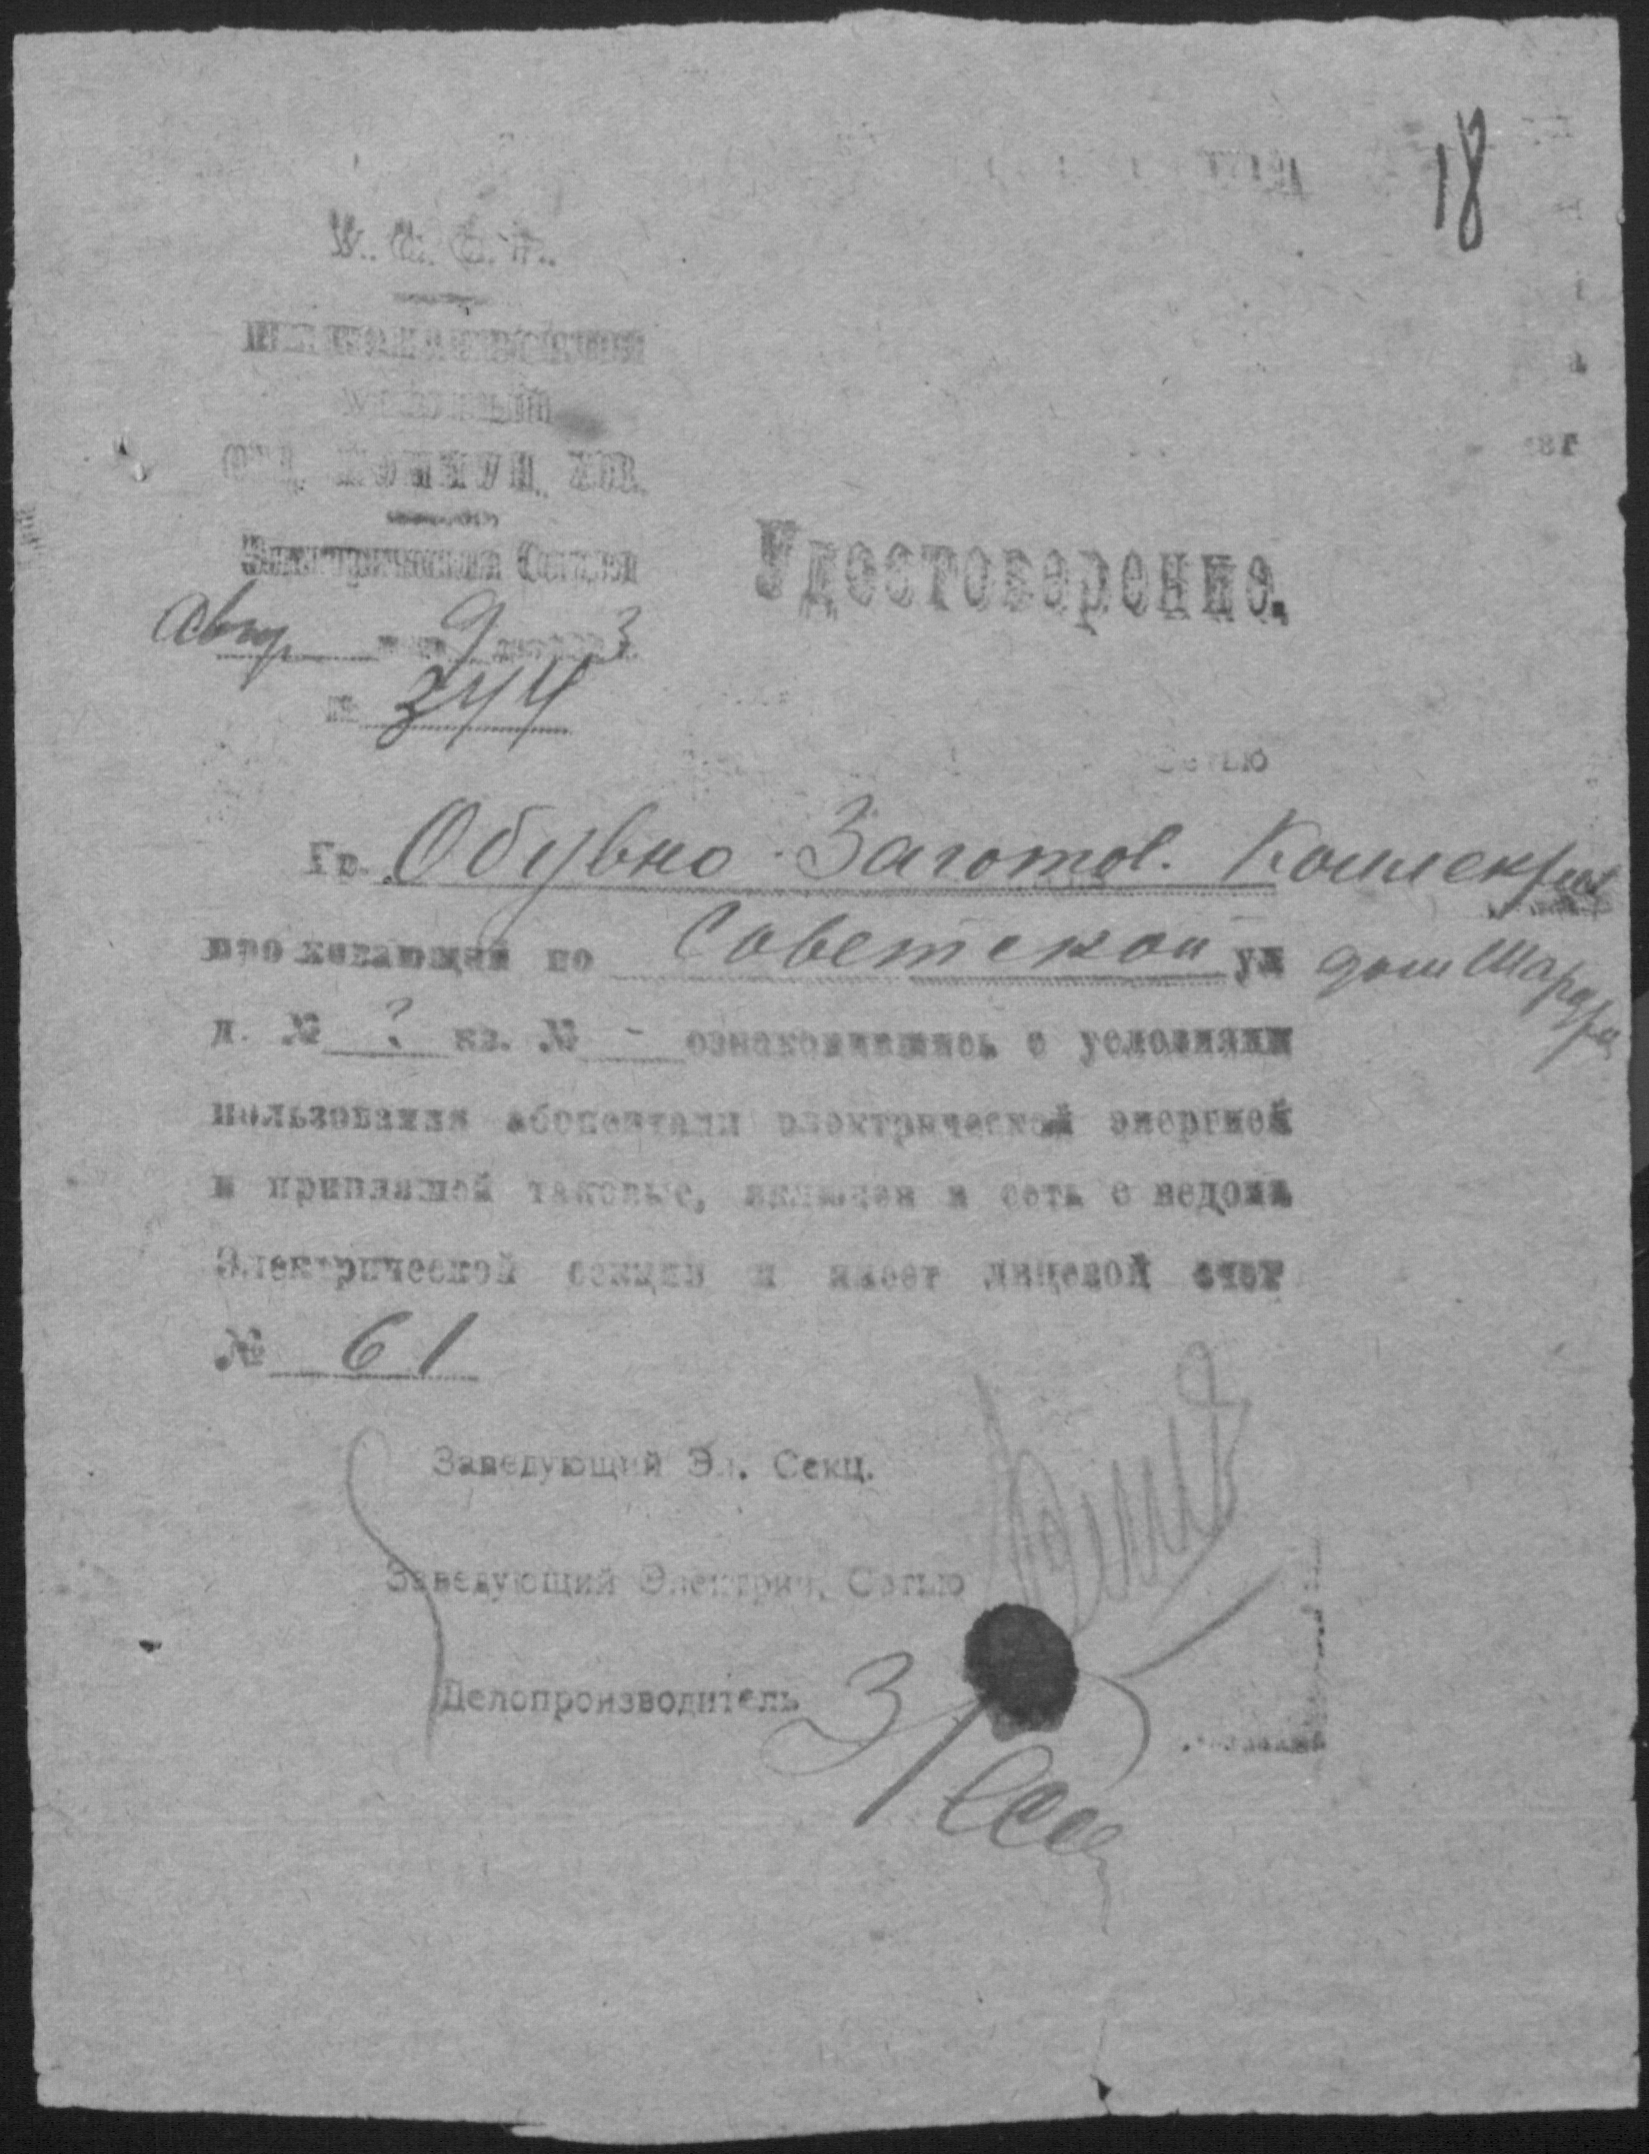 18
У. С. С. Р.
ОТД. КОММУН. ХОЗ.
Электрическая Секция
Авгу 9 дня 3
№ 344
Удостоверение.
Сетью
Гр. Обувно-Заготов. Коллектив
проживающий по Советской ул дом
д. № ? кв. № - ознакомившись с условиями
пользования абонентами электрической энергией
и принявшей таковые, включен в сеть с ведома
Электрической секции и имеет лицевой счет
№ 61
Заведующий Эл. Секц.
Заведующий Электрич. Сетью
Делопроизводитель